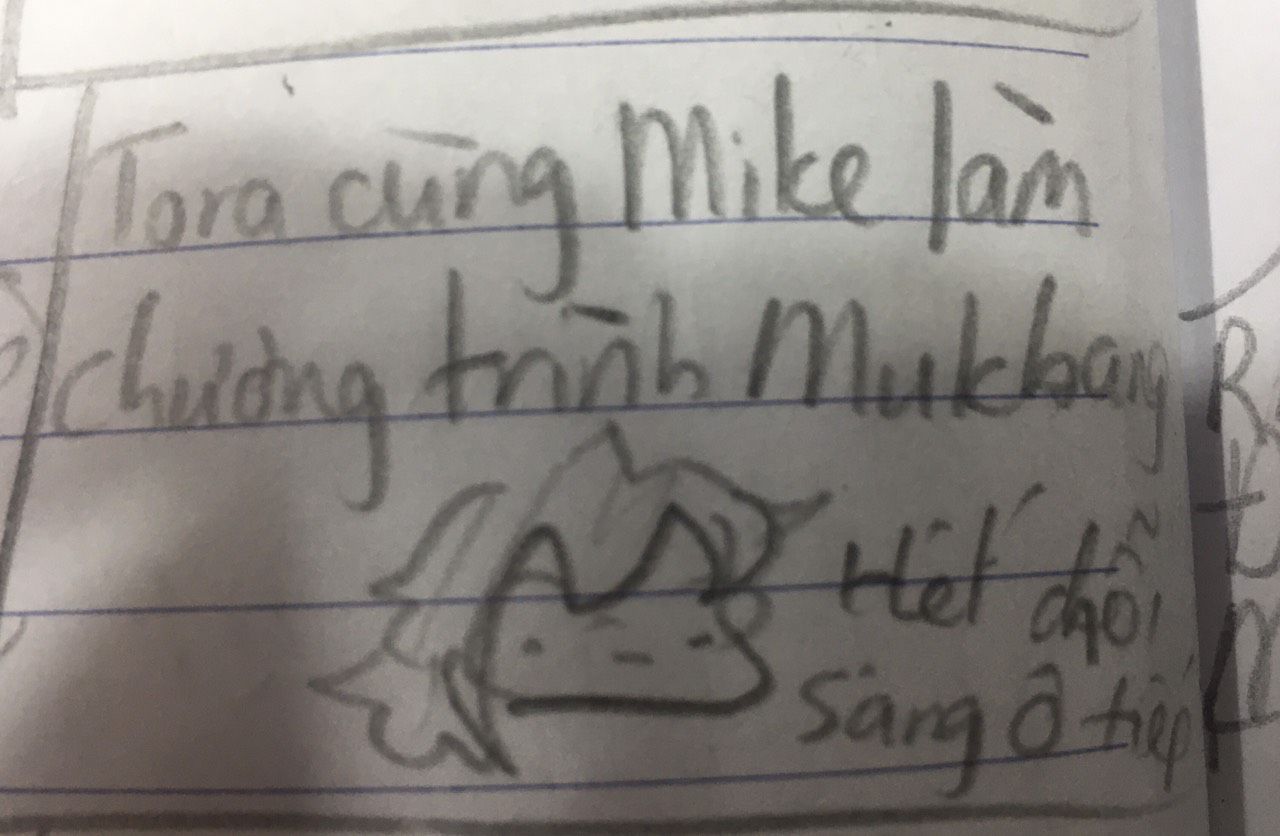 Tora cùng Mike làm
chương trình Mukbang
Hết chỗi
sang ô tiếp